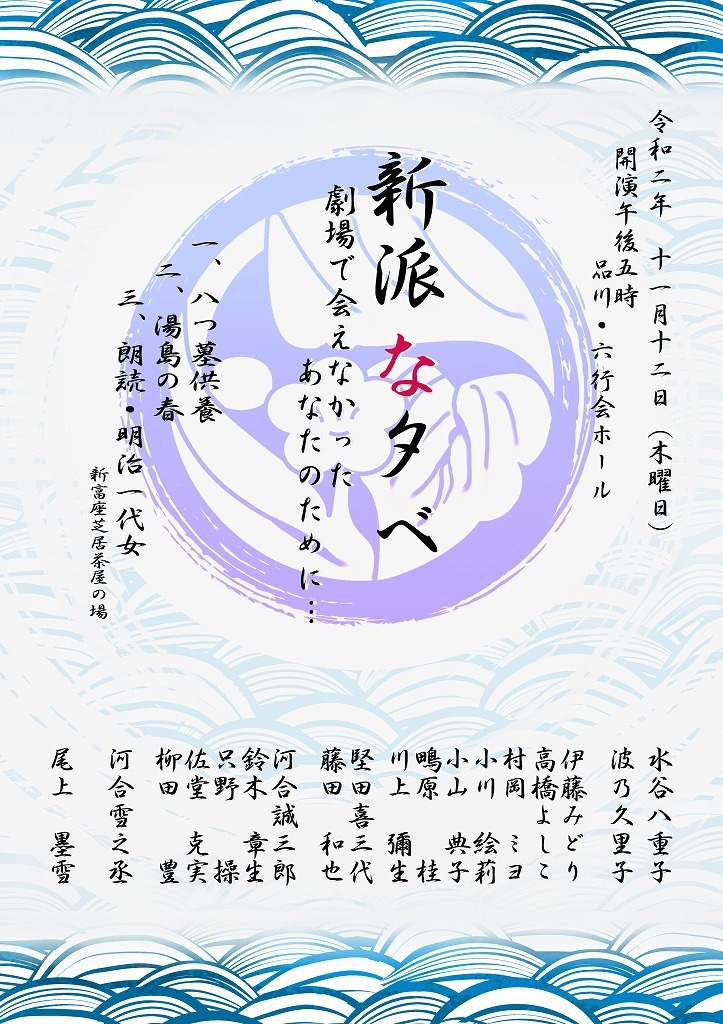 令和二年　十一月十二日（木曜日）
開演午後五時
品川・六行会ホール
新派な夕べ
劇場で会えなかった
あなたのために…
一、八つ墓供養
二、湯島の春
三、朗読・明治一代女
新富座芝居茶屋の場
水谷八重子
波乃久里子
伊藤みどり
高橋よしこ
村岡　ミヨ
小川　絵莉
小山　典子
鴫原　桂
川上　彌生
堅田喜三代
藤田　和也
河合誠三郎
鈴木　章生
只野　操
佐堂　克実
柳田　豊
河合雪之丞
尾上　墨雪